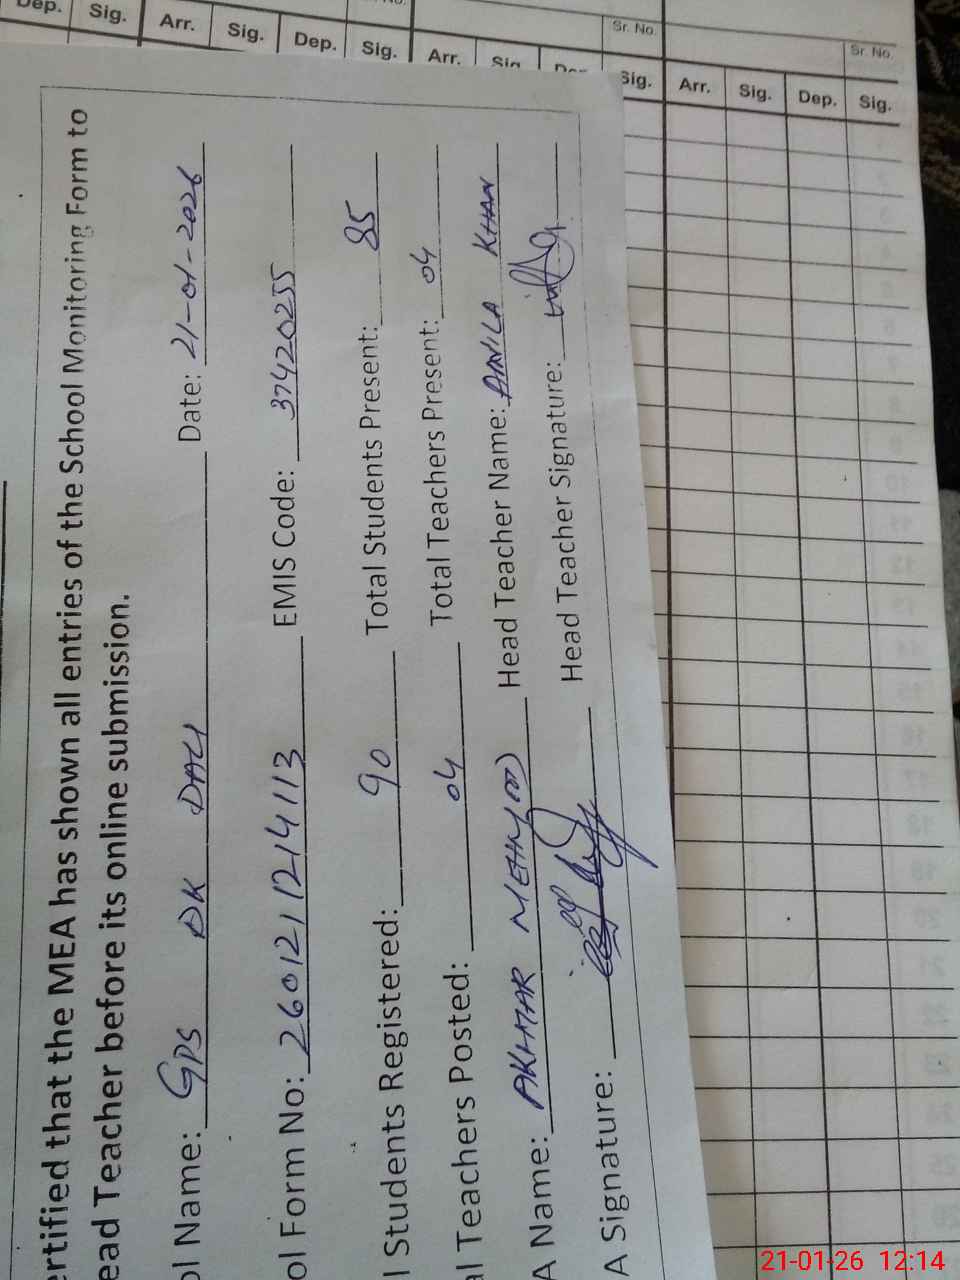 Dep. Sig. Arr. Sig. Dep. Sig. Arr. Sig. Dep. Sig. Arr. Sig. Dep. Sig.
Sr. No. Sr. No.
ertified that the MEA has shown all entries of the School Monitoring Form to
ead Teacher before its online submission.
ol Name: GPS DK DALI Date: 21-01-2026
ol Form No: 2601211214113 EMIS Code: 37420255
l Students Registered: 90 Total Students Present: 85
al Teachers Posted: 04 Total Teachers Present: 04
A Name: AKHMAR Head Teacher Name: AINILA KHAN
A Signature: Head Teacher Signature:
21-01-26 12:14